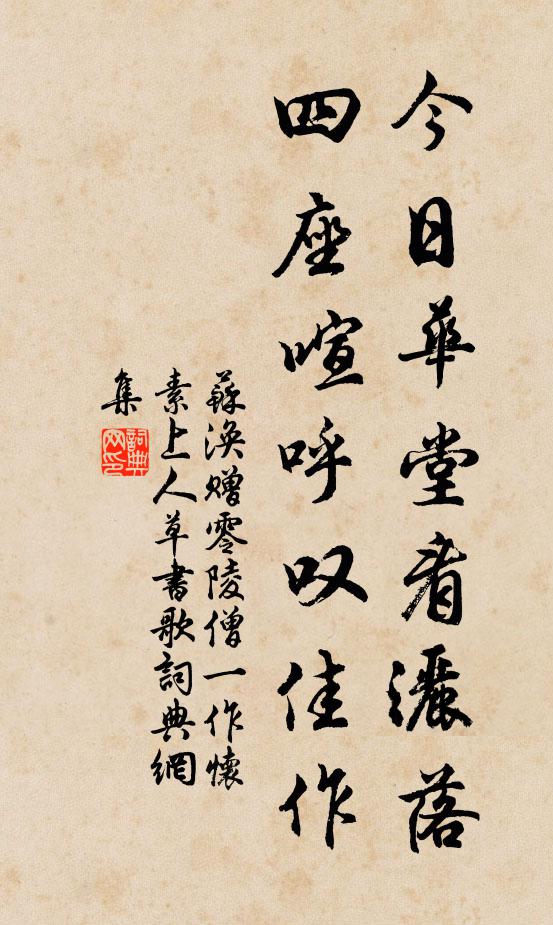 今日華堂看灑落
四座喧呼叹佳作
蘇渙贈零陵僧一作懷
素上人草書歌詞典網
集
詞典網印